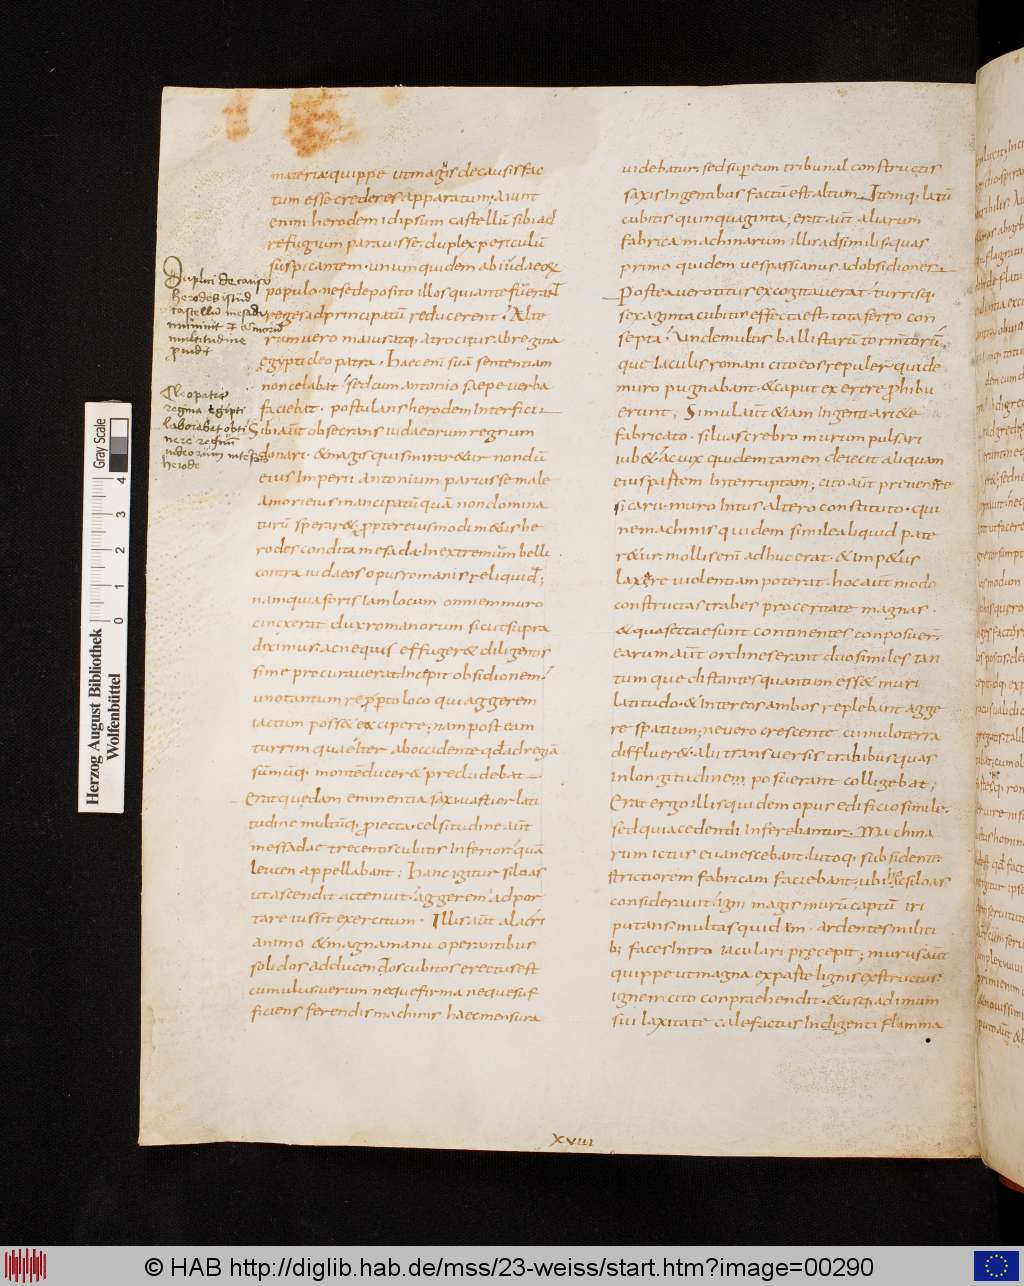 materiæ quippe ut magis de causis fac
tum esse crederes apparatum. Aiunt
enim herodem id ipsum castellū sibi ad
refugium paravisse. duplex periculū
suspicantem. unum quidem ab iudaeorum
populo ne se deposito illos qui ante fuerant
reges ad principatū reducerent. Alte
rum uero maius atq. atrocius ab regina
egypti cleopatra. Haec enī suā sententiam
non celabat sed cum antonio saepe uerba
faciebat. postulans herodem interfici
Sibi aūt obsecrans iudaeorum regnum
donari. & magis quis mirar& ur nondū
eius Imperii antonium paruisse male
amori eius mancipatū quā non domina
turū sperar& ꝓpter eiusmodi m&us he
rodes condita mesada. In extremūm belli
contra iudaeos opus romanis reliquid;
nam quia foris Iam locum omnem muro
cinxerat dux romanorum sicut supra
diximus ac ne quis effuger& diligentis
sime procuraverat Incepit obsidionem.
uno tantum repꝑto loco qui aggerem
iactum poss& excipere; nam post eam
turrim quae iter ab occidente qđ ad regiā
sūmūq. montē ducer& precludebat
Erat quedam eminentia saxi uastior lati
tudine multūq. ꝓiecta. celsitudine aūt
messadae trecentis cubitis Inferior. quā
leucen appellabant; Hanc igitur siloas
ut ascendit ac tenuit aggerem ad por
tare iussit exercitum. Illis aūt alacri
animo & magna manu operantibus
solidos ad ducendos cubitos erectus est
cumulus. uerum neque firma neque suf
ficiens ferendis machinis haec mensura
uidebatur. sed super eum tribunal constructis
saxis Ingentibus factū est altum. Itemq. latū
cubitis quinquaginta; erat aūt aliarum
fabrica machinarum illis adsimilis quas
primo quidem uespassianus ad obsidiones
Postea uero titus excogitauerat. turrisq.
sexaginta cubitis effecta est. tota ferro con
septa. Unde multis ballistarū tormitorū
que Iaculis romani cito eos repuler qui de
muro pugnabant. & caput exerere ꝓhibu
erunt; Simul aūt & iam Ingenti ari&e
fabricato. silvas crebro murum pulsari
iub& ac uix quidem tamen deiecit aliquam
eius partem Interruptam; cito aūt preuenere
sicarii. muro Intus altero constituto. qui
ne machinis quidem simile aliquid pate
r&ur. mollis enī adhuc erat. & imp&us
laxare uiolentiam poterat. hoc aūt modo
constructas trabes proceritate magnas.
& qua sectae sunt continentes conposuer̄
earum aūt ordines erant duo similes tan
tum que distantes quantum ess& muri
latitudo. & Inter eos ambos replebant agge
re spatium; ne uero crescente cumulo terra
difflver&. alii transversis trabibus. quas
In longitudinem posuerant colligebat;
Erat ergo illis quidem opus edificio simile.
sed quia cedendi Inferebantur. Machina
rum ictus evanescebant. lutoq. subsidenti
strictiorem fabricam faciebant. ubi hec siloas
consideravit igni magis murū captū iri
putans multas quidem. ardentes militi
b; faces Intro iaculari pręcepit; murus aūt
quippe ut magna ex parte lignis exstructus
ignem cito conpraehendit. & usq. ad imum
sui laxitate calefactus Indigenti flamma
Cleopatre
regina Egipti
laborabat obti
nere regnū
XVIII
Herzog August Bibliothek
Wolfenbüttel
Gray Scale
0 1 2 3 4
© HAB http://diglib.hab.de/mss/23-weiss/start.htm?image=00290